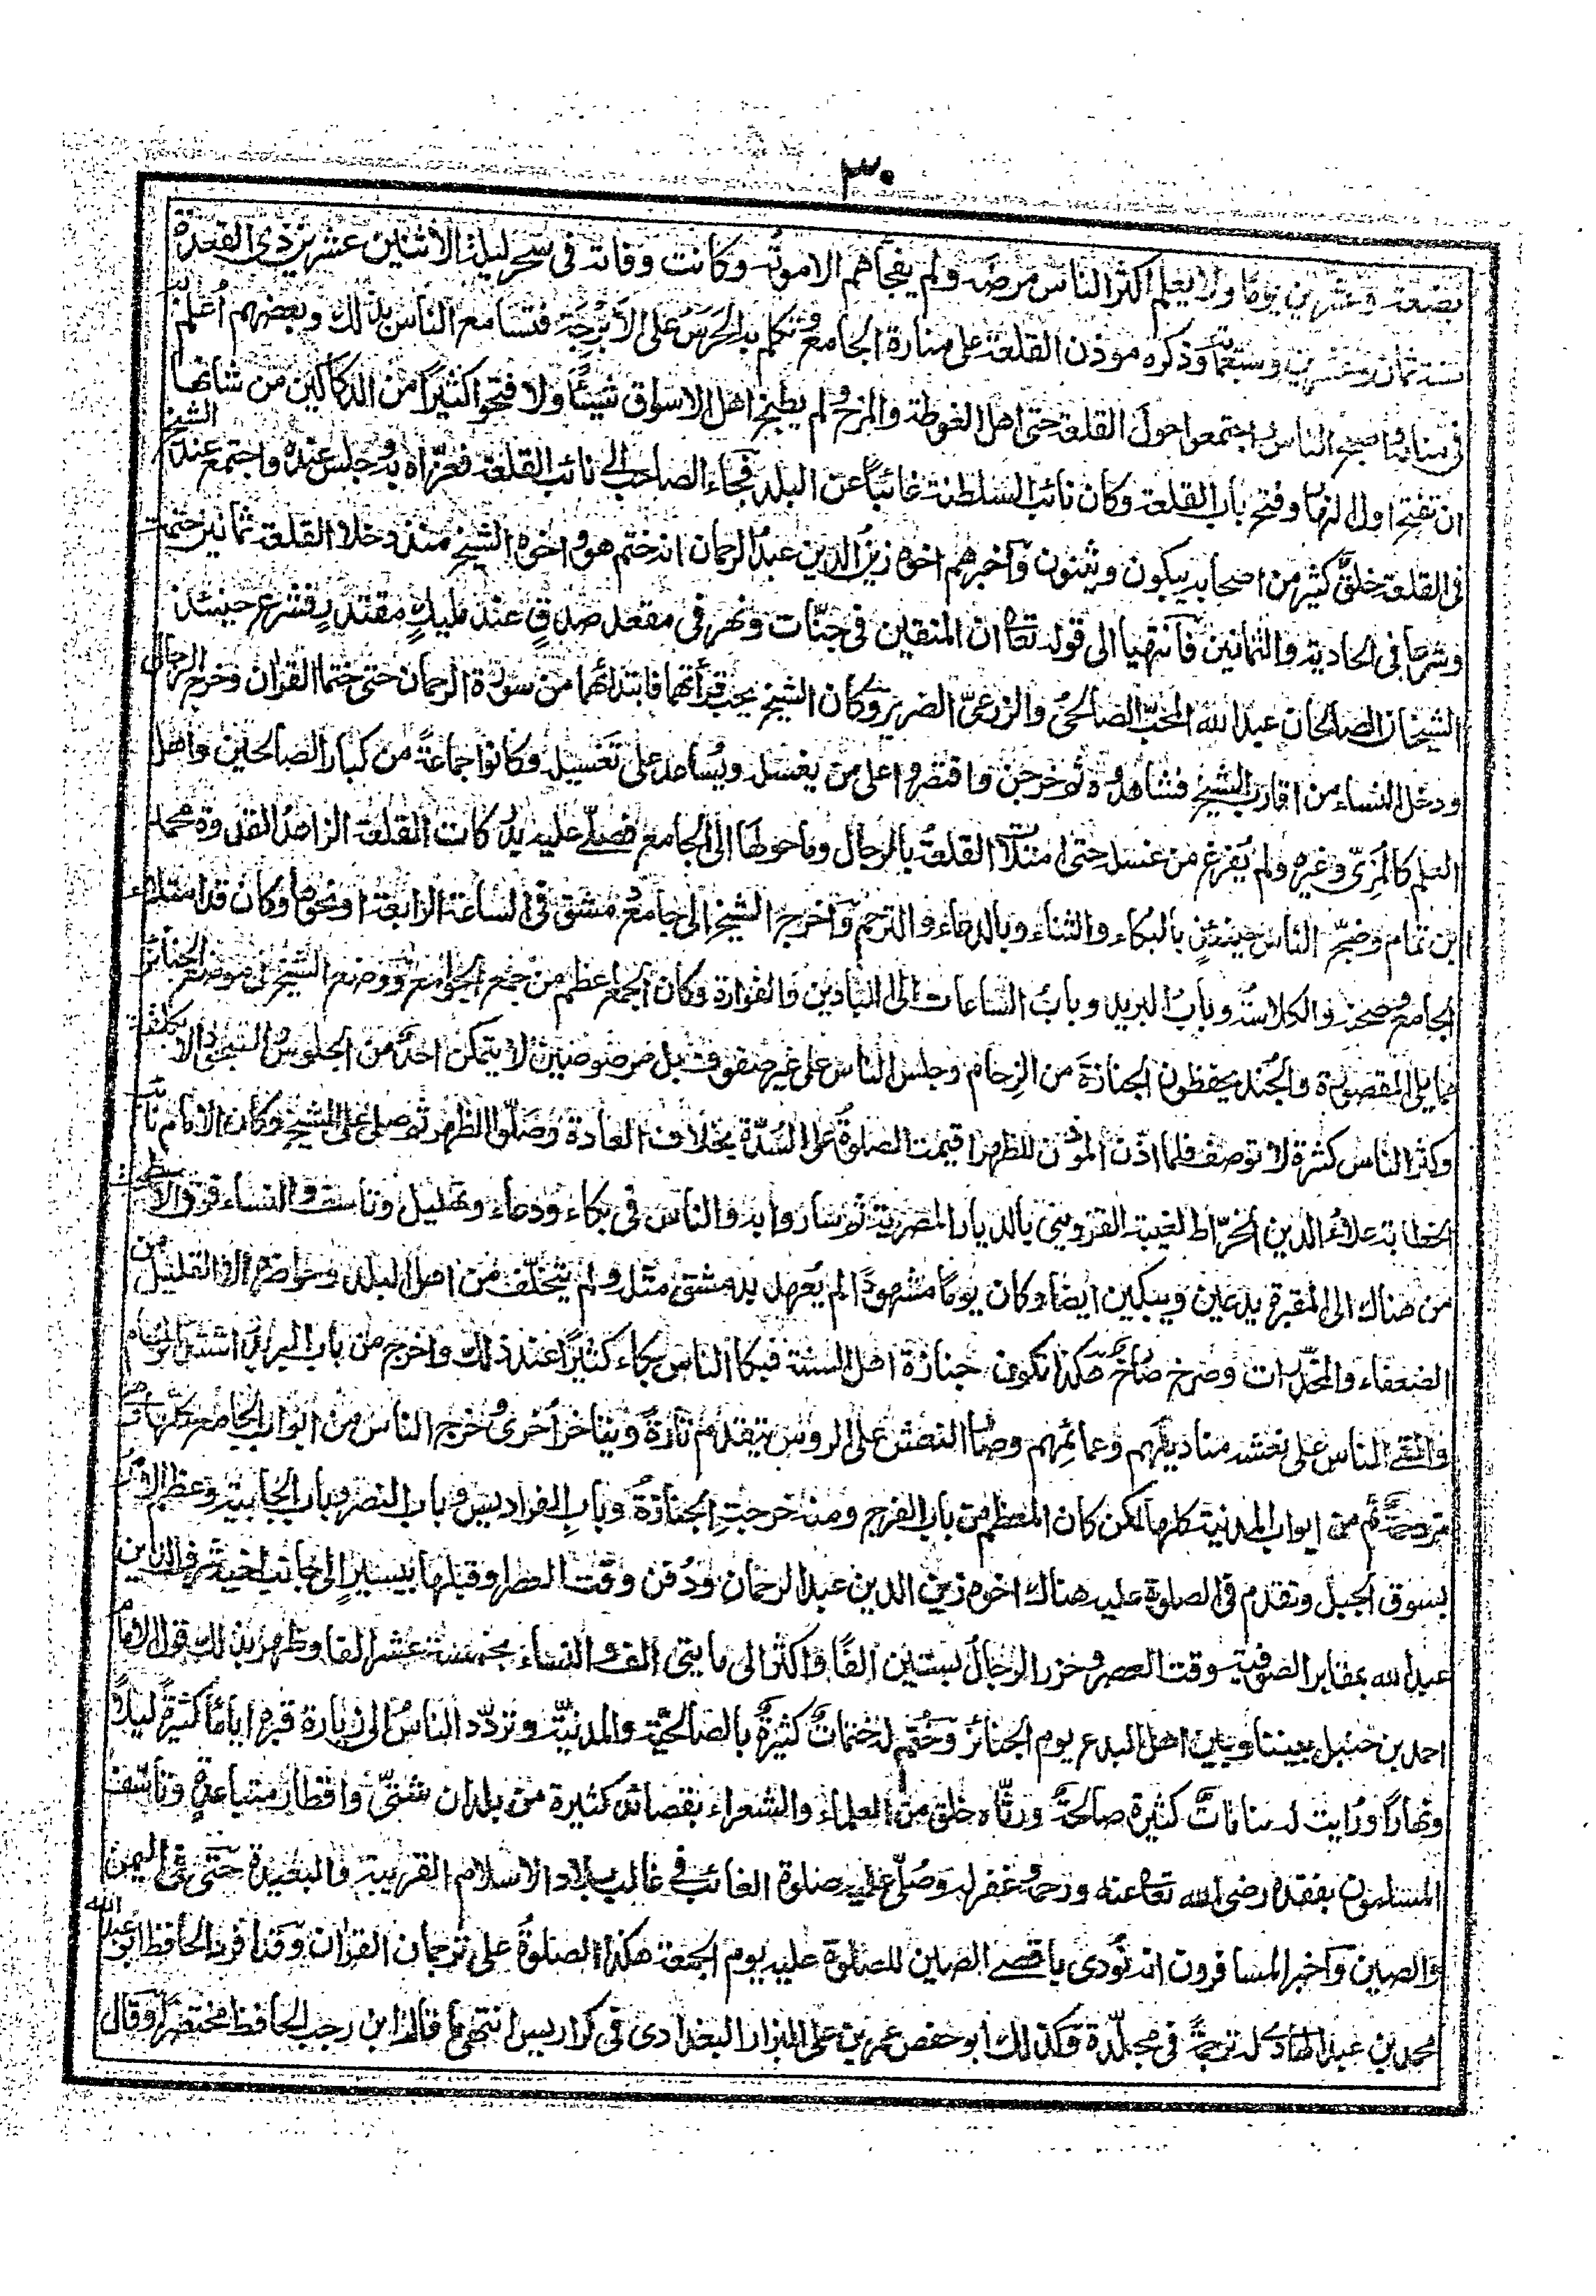 ٣٠
بضعة وعشرين يومًا ولا يعلم اكثر الناس مرضه ولم يفجأهم الا موتُه وكانت وفاته في سحر ليلة الاثنين عشرين ذي القعدة
سنة ثمان وعشرين وسبعمائة وذكره موذن القلعة على منارة الجامع وتكلم به الحَرَسُ على الاَبْرُجَةِ فتسامع الناس بذلك وبعضهم اُعلم به
في منامه واصبح الناس واجتمعوا حولَ القلعة حتى اهل الغوطة والمرج ولم يطبخ اهل الاسواق شيئًا ولا فتحوا كثيرًا من الدكاكين من شانها
ان تفتح اول النهار وفتح باب القلعة وكان نائب السلطنة غائبًا عن البلد فجاء الصاحب الى نائب القلعة فعزّاه به وجلس عنده واجتمع عند الشيخ
في القلعة خلقٌ كثير من اصحابه يبكون ويثنون وآخبرهم اخوه زين الدين عبدُ الرحمان انه ختم هو واخوه الشيخ منذ دخلا القلعة ثمانين ختمة
وشرعا في الحادية والثمانين فآنتهيا الى قوله تعالى ان المتقين في جنّات ونهر في مقعد صدقٍ عند مليكٍ مقتدرٍ فشرع حينئذ
الشيخان الصالحان عبد الله المحبّ الصالحيُ والزرعيّ الضرير وكان الشيخ يحب قرأتهما فابتدائهما من سورة الرحمان حتى ختما القران وخرج الرجال
ودخل النساء من اقارب الشيخ فشاهدوه ثم خرجن واقتصروا على من يغسله ويُساعد على تَغسيله وكانوا جماعةً من كبار الصالحين واهل
العلم كالمِزّي وغيره ولم يُفرغ من غسله حتى امتلآ القلعة بالرجال وما حولها الى الجامع فصلّى عليه بدُركات القلعة الزاهدُ القدوة محمد
ابن تمام وضجّ الناس حينئذٍ بالبكاء والثناء وبالدعاء والترحم وآخرج الشيخ الى جامع دمشق في الساعة الرابعة او نحوها وكان قد امتلاء
الجامع وصحنه والكلاسة وباب البريد وبابُ الساعات الى اللبادين والفوارة وكان الجمع اعظم من جمع الجوامع ووضع الشيخ في موضع الجنائز
مما يلي المقصورة والجُند يحفظون الجنازة من الزحام وجلس الناس على غير صفوف بل مرصوصين لا يتمكن احدٌ من الجلوس والسجود الا بكلفة
وكثر الناس كثرة لا توصف فلما اذّن الموذن للظهر اقيمت الصلوةُ على السُدّة بخلاف العادة وصلّى الظهر ثم صلى على الشيخ وكان الامام نائب
الخطابة علاءُ الدين الخرّاط لغيبة القزويني بالديار المصرية ثم ساروا به والناس في بكاء ودعاء وتهليل وتاسف والنساء فوق الاسطحة
من هناك الى المقبرة يدعين ويبكين ايضا وكان يومًا مشهودًا لم يُعهد بدمشق مثله ولم يتخلّف من اهل البلد وحواضره الا القليل من
الضعفاء والمخدّرات وصرخ صَارخ هكذا تكون جنازة اهل السنة فبكا الناس بكاء كثيرًا عند ذلك واخرج من باب البريد اشتد الزحام
والقى الناس على نعشه مناديلهم وعمائِمهم وصار النعش على الروس يتقدم تارةً ويتاخر اُخرى وخرج الناس من ابواب الجامع كلها
مزدحمة ثم من ابواب المدينة كلها لكن كان المعظم من باب الفرج ومنه خرجتِ الجنازةُ وبابِ الفراديس وباب النصر وباب الجابية وعظم الامر
بسوق الجبل وتقدم في الصلوة عليه هناك اخوه زين الدين عبد الرحمان ودُفن وقت العصر او قبلها بيسيرٍ الى جانب اخيه شرف الدين
عبد الله بمقابر الصوفية وقت العصر وحزر الرجالُ بستين الفًا واكثر الى مايتى الف والنساء بخمسة عشر الفا وظهر بذلك قول الامام
احمد بن حنبل بيننا وبين اهل البدع يوم الجنائز وخُتم له ختماتٌ كثيرةٌ بالصالحيّة والمدنيّة وتردّد الناسُ الى زيارة قبره ايامًا كثيرةً ليلًا
ونهارًا ورُايت له مناماتٌ كثيرة صالحةٌ ورثّاه خلق من العلماء والشعراء بقصائد كثيرة من بلدان شتىّ واقطار متباعدةٍ وتاسّف
المسلمون بفقده رضى الله تعالى عنه ورحمه وغفر له وصُلّى عليه صلوة الغائب في غالب بلاد الاسلام القريبة والبعيدة حتى في اليمن
والصين وآخبر المسافرون انه نُودى باقصى الصين للصلوة عليه يوم الجمعة هكذا الصلوةُ على ترجمان القران وقد افرد الحافظ ابن عبد الله
محمد بن عبد الهادي له ترجمةً في مجلّدة وكذلك أبو حفص عمر بن على البزار البغدادى في كراريس انتهى ما قاله ابن رجب الحافظ مختصرًا وقال